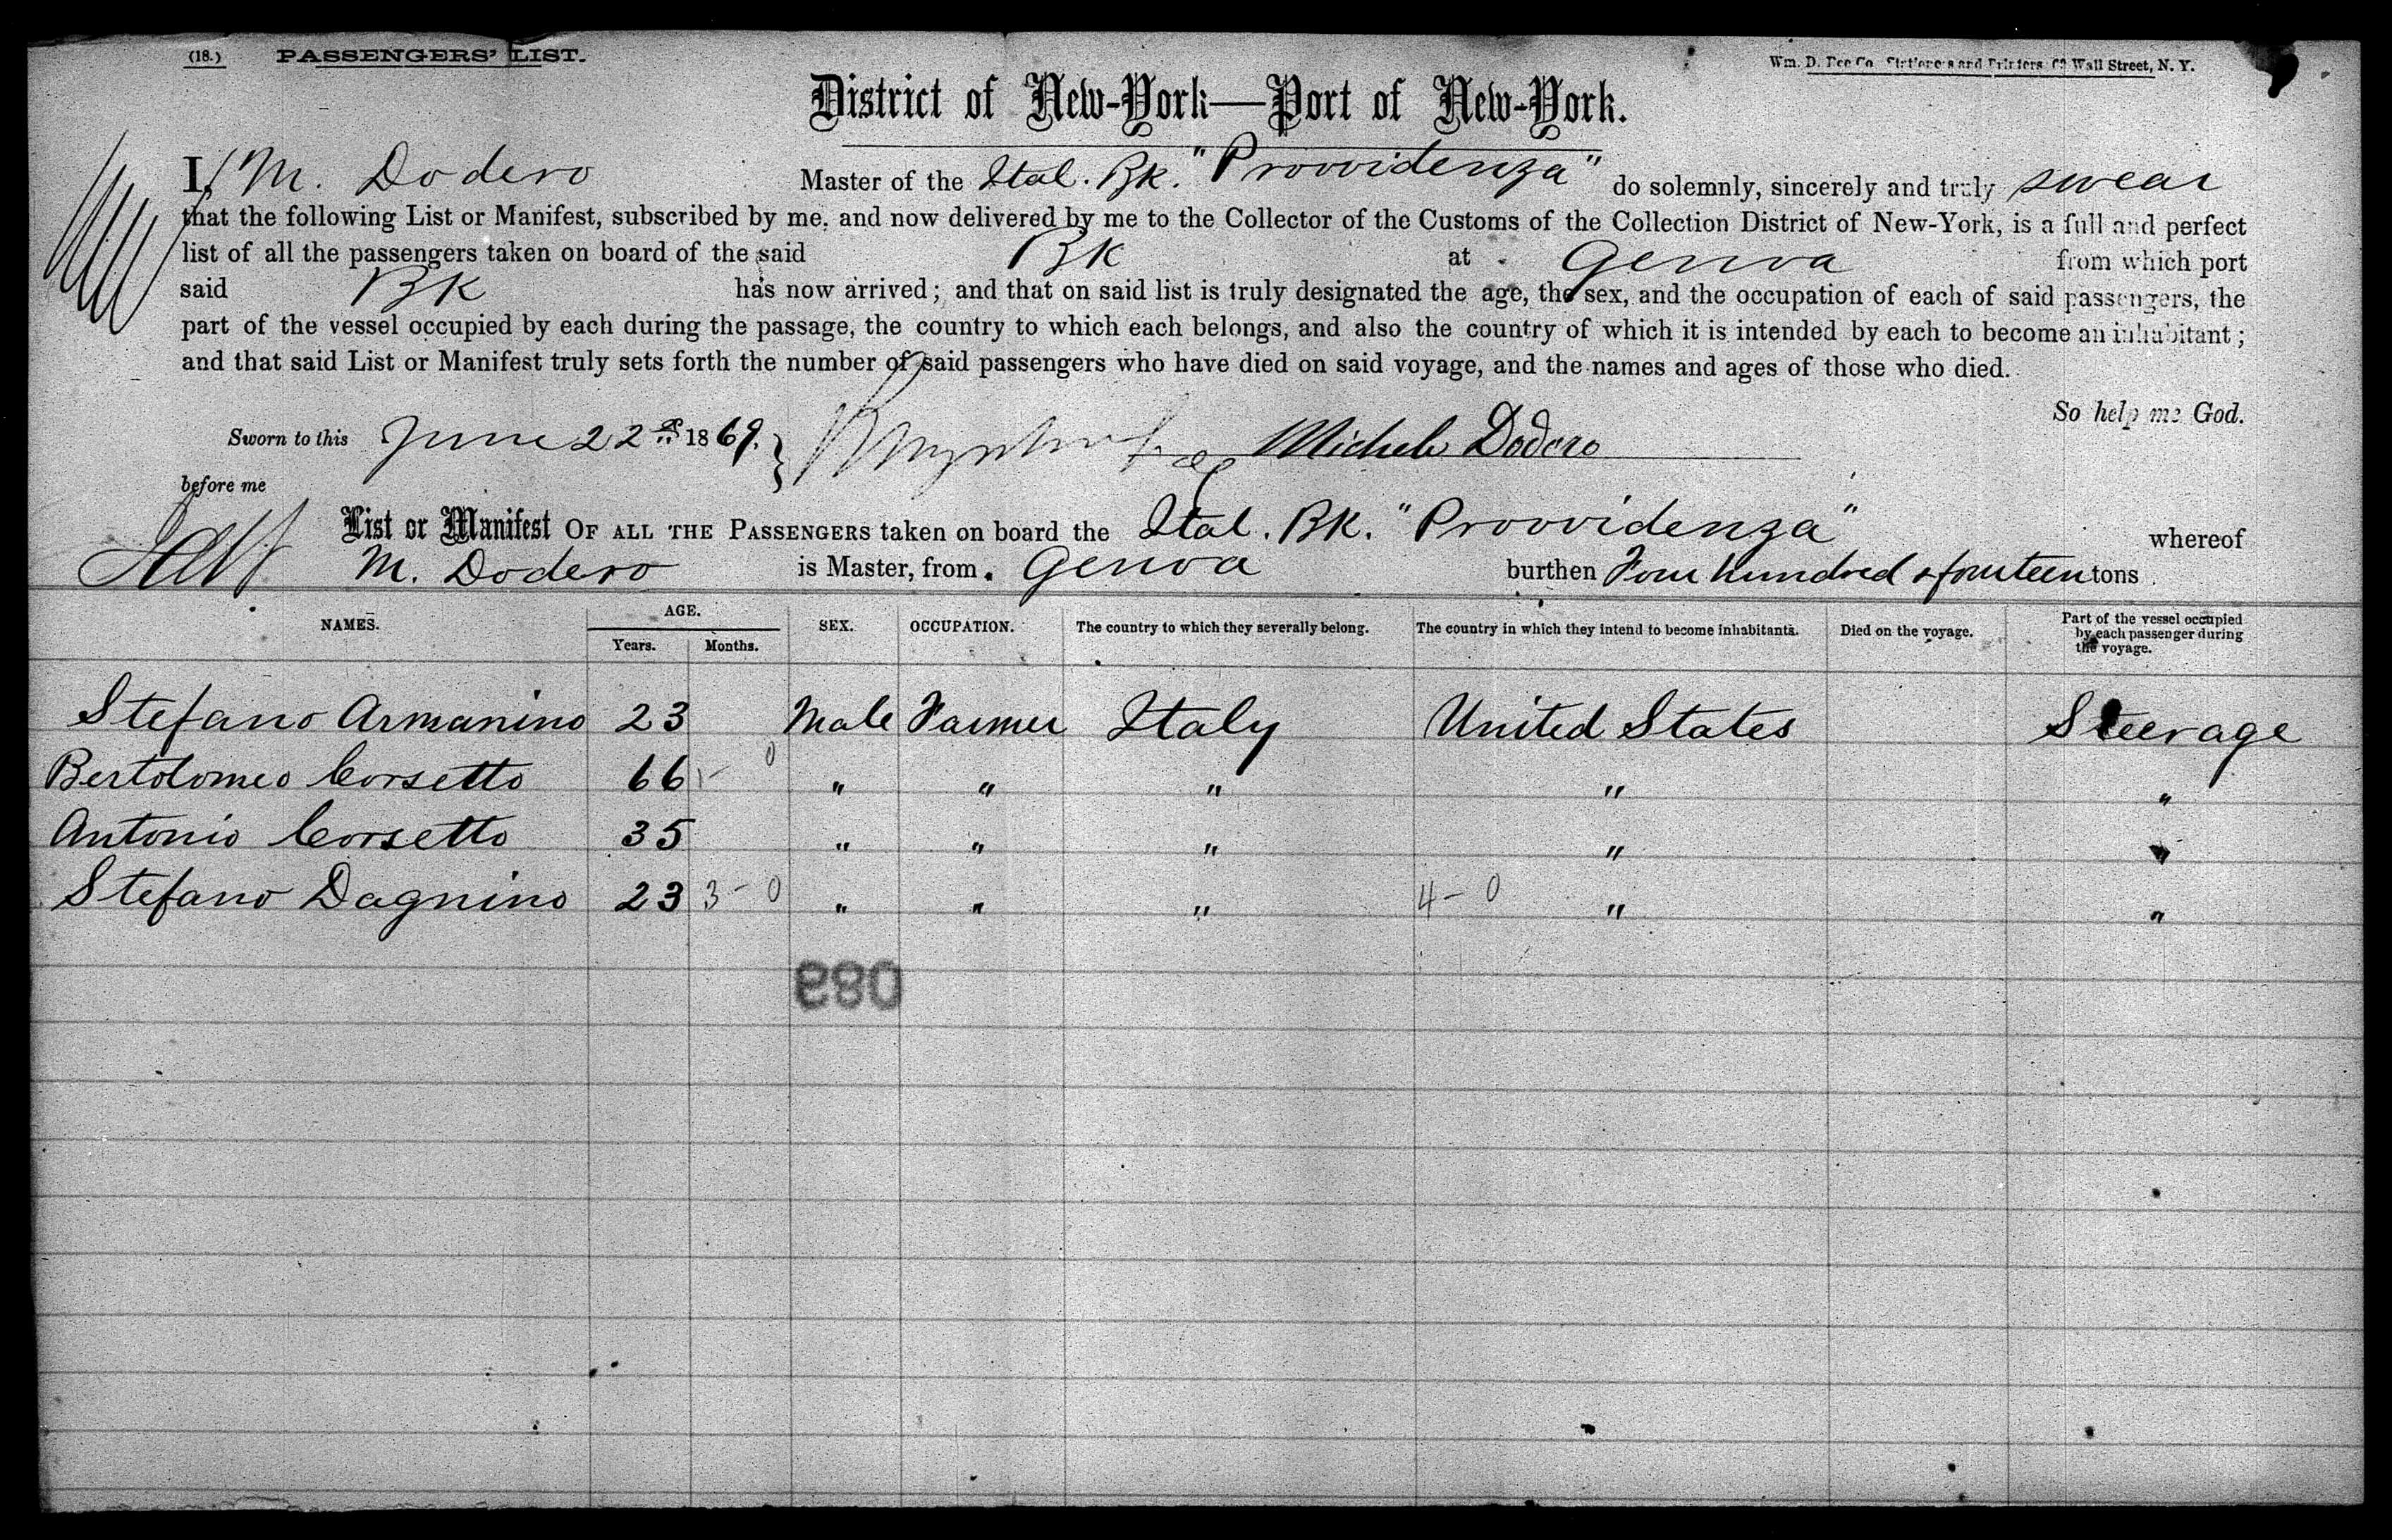 (18.) PASSENGERS' LIST.
Wm. D. Co. Stationers and Printers, Wall Street, N. Y.
District of New-York—Port of New-York.
I, M. Dodero Master of the Ital. Bk. "Provvidenza" do solemnly, sincerely and truly swear
that the following List or Manifest, subscribed by me, and now delivered by me to the Collector of the Customs of the Collection District of New-York, is a full and perfect
list of all the passengers taken on board of the said Bk at Genoa from which port
said Bk has now arrived; and that on said list is truly designated the age, the sex, and the occupation of each of said passengers, the
part of the vessel occupied by each during the passage, the country to which each belongs, and also the country of which it is intended by each to become an inhabitant;
and that said List or Manifest truly sets forth the number of said passengers who have died on said voyage, and the names and ages of those who died.
So help me God.
Sworn to this June 22d 1869. Michele Dodero
before me
List or Manifest OF ALL THE PASSENGERS taken on board the Ital. Bk. "Provvidenza" whereof
M. Dodero is Master, from Genoa burthen Four hundred & fourteen tons
NAMES. AGE. Years. Months. SEX. OCCUPATION. The country to which they severally belong. The country in which they intend to become inhabitants. Died on the voyage. Part of the vessel occupied by each passenger during the voyage.
Stefano Armanino 23 Male Farmer Italy United States Steerage
Bertolomeo Corsetto 66 - 0 " " " " "
Antonio Corsetto 35 " " " " "
Stefano Dagnino 23 3 - 0 " " " 4 - 0 " "